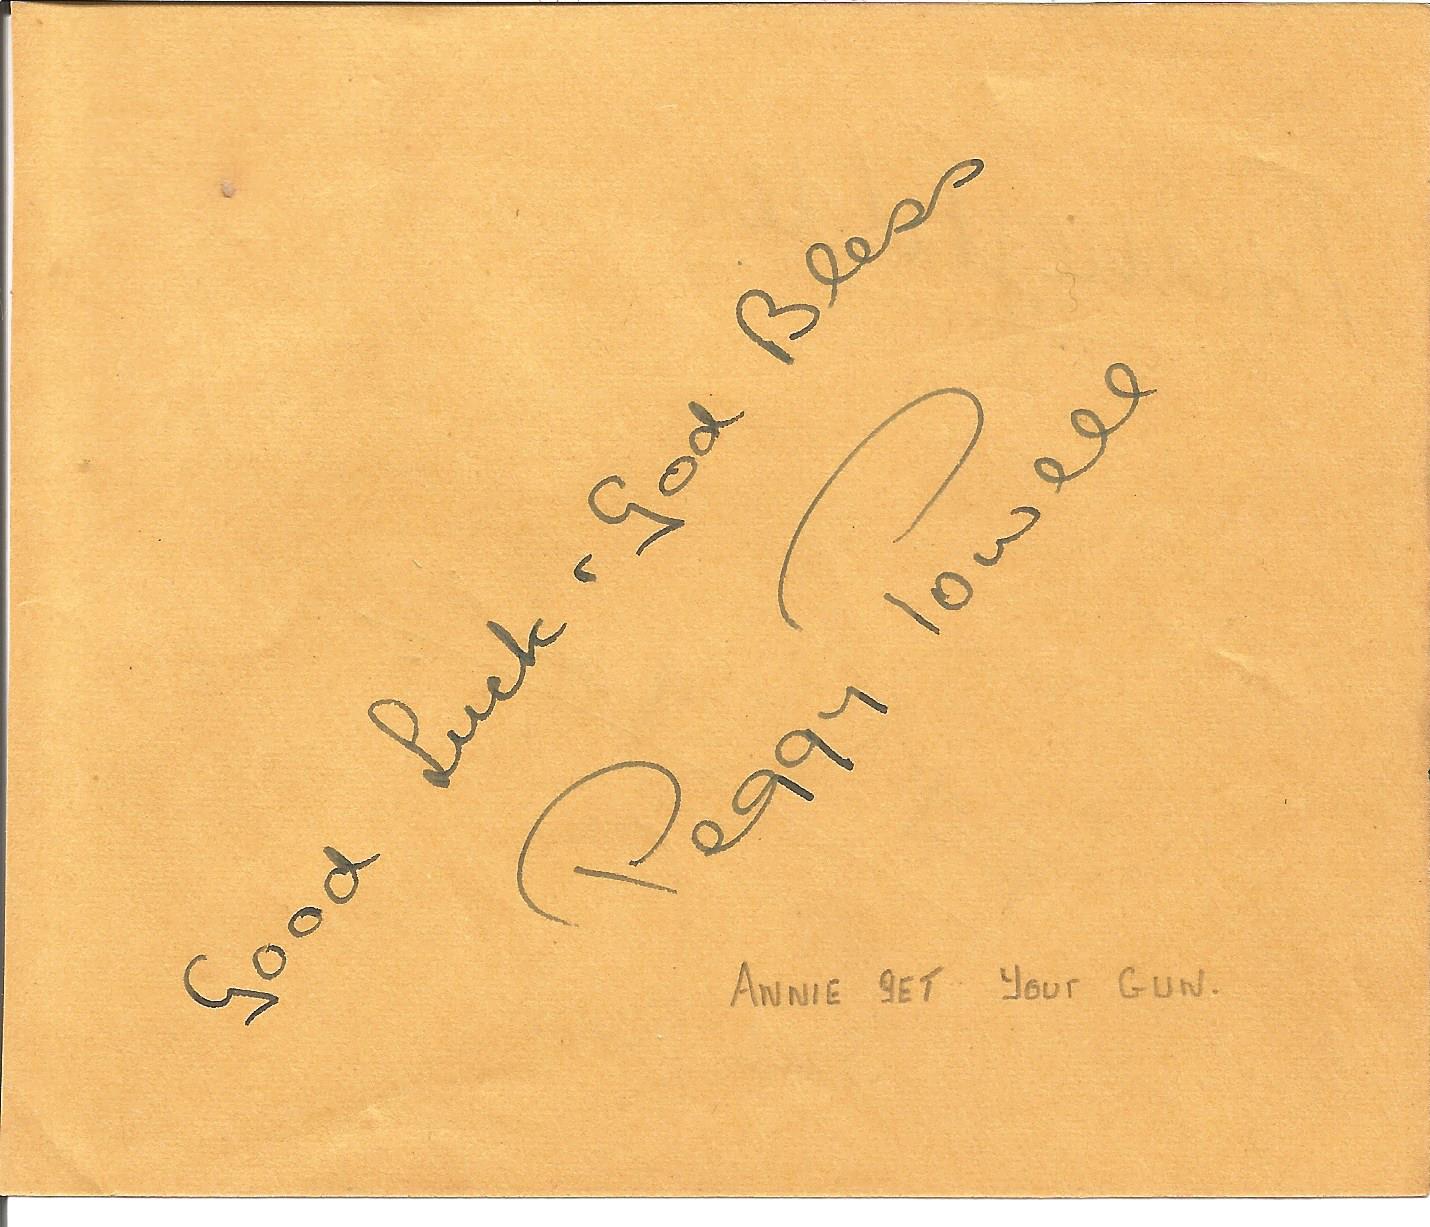 Good Luck - God Bless
Peggy Powell
ANNIE GET YOUR GUN.